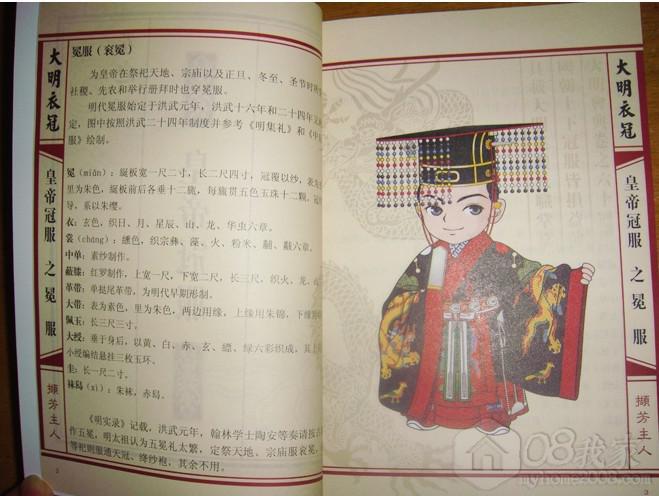 大明衣冠
皇帝冠服 之 冕 服
撷芳主人
冕服（衮冕）
为皇帝在祭祀天地、宗庙以及正旦、冬至、圣节时所
社稷、先农和举行册拜时也穿冕服。
明代冕服始定于洪武元年，洪武十六年和二十四年又
定，图中按照洪武二十四年制度并参考《明集礼》和《中
服》绘制。
冕（miǎn）：綖板宽一尺二寸，长二尺四寸，冠覆以纱，表为
里为朱色，綖板前后各垂十二旒，每旒贯五色玉珠十二颗，
导、系以朱缨。
衣：玄色，织日、月、星辰、山、龙、华虫六章。
裳（cháng）：纁色，织宗彝、藻、火、粉米、黼、黻六章。
中单：素纱制作。
蔽膝：红罗制作，上宽一尺，下宽二尺，长三尺，织火、龙、
革带：单挞尾革带，为明代早期形制。
大带：表为素色，里为朱色，两边用缘，上缘用朱锦，下缘
佩玉：长三尺三寸。
大绶：垂于身后，以黄、白、赤、玄、缥、绿六彩织成，其上
小绶编结悬挂三枚玉环。
圭：长一尺二寸。
袜舄（xì）：朱袜，赤舄。
《明实录》记载，洪武元年，翰林学士陶安等奏请按古
作五冕，明太祖认为五冕礼太繁，定祭天地、宗庙服衮冕，
等祀则服通天冠、绛纱袍，其余不用。
2
大明衣冠
皇帝冠服 之 冕 服
撷芳主人
3
08我家
myhome2008.com